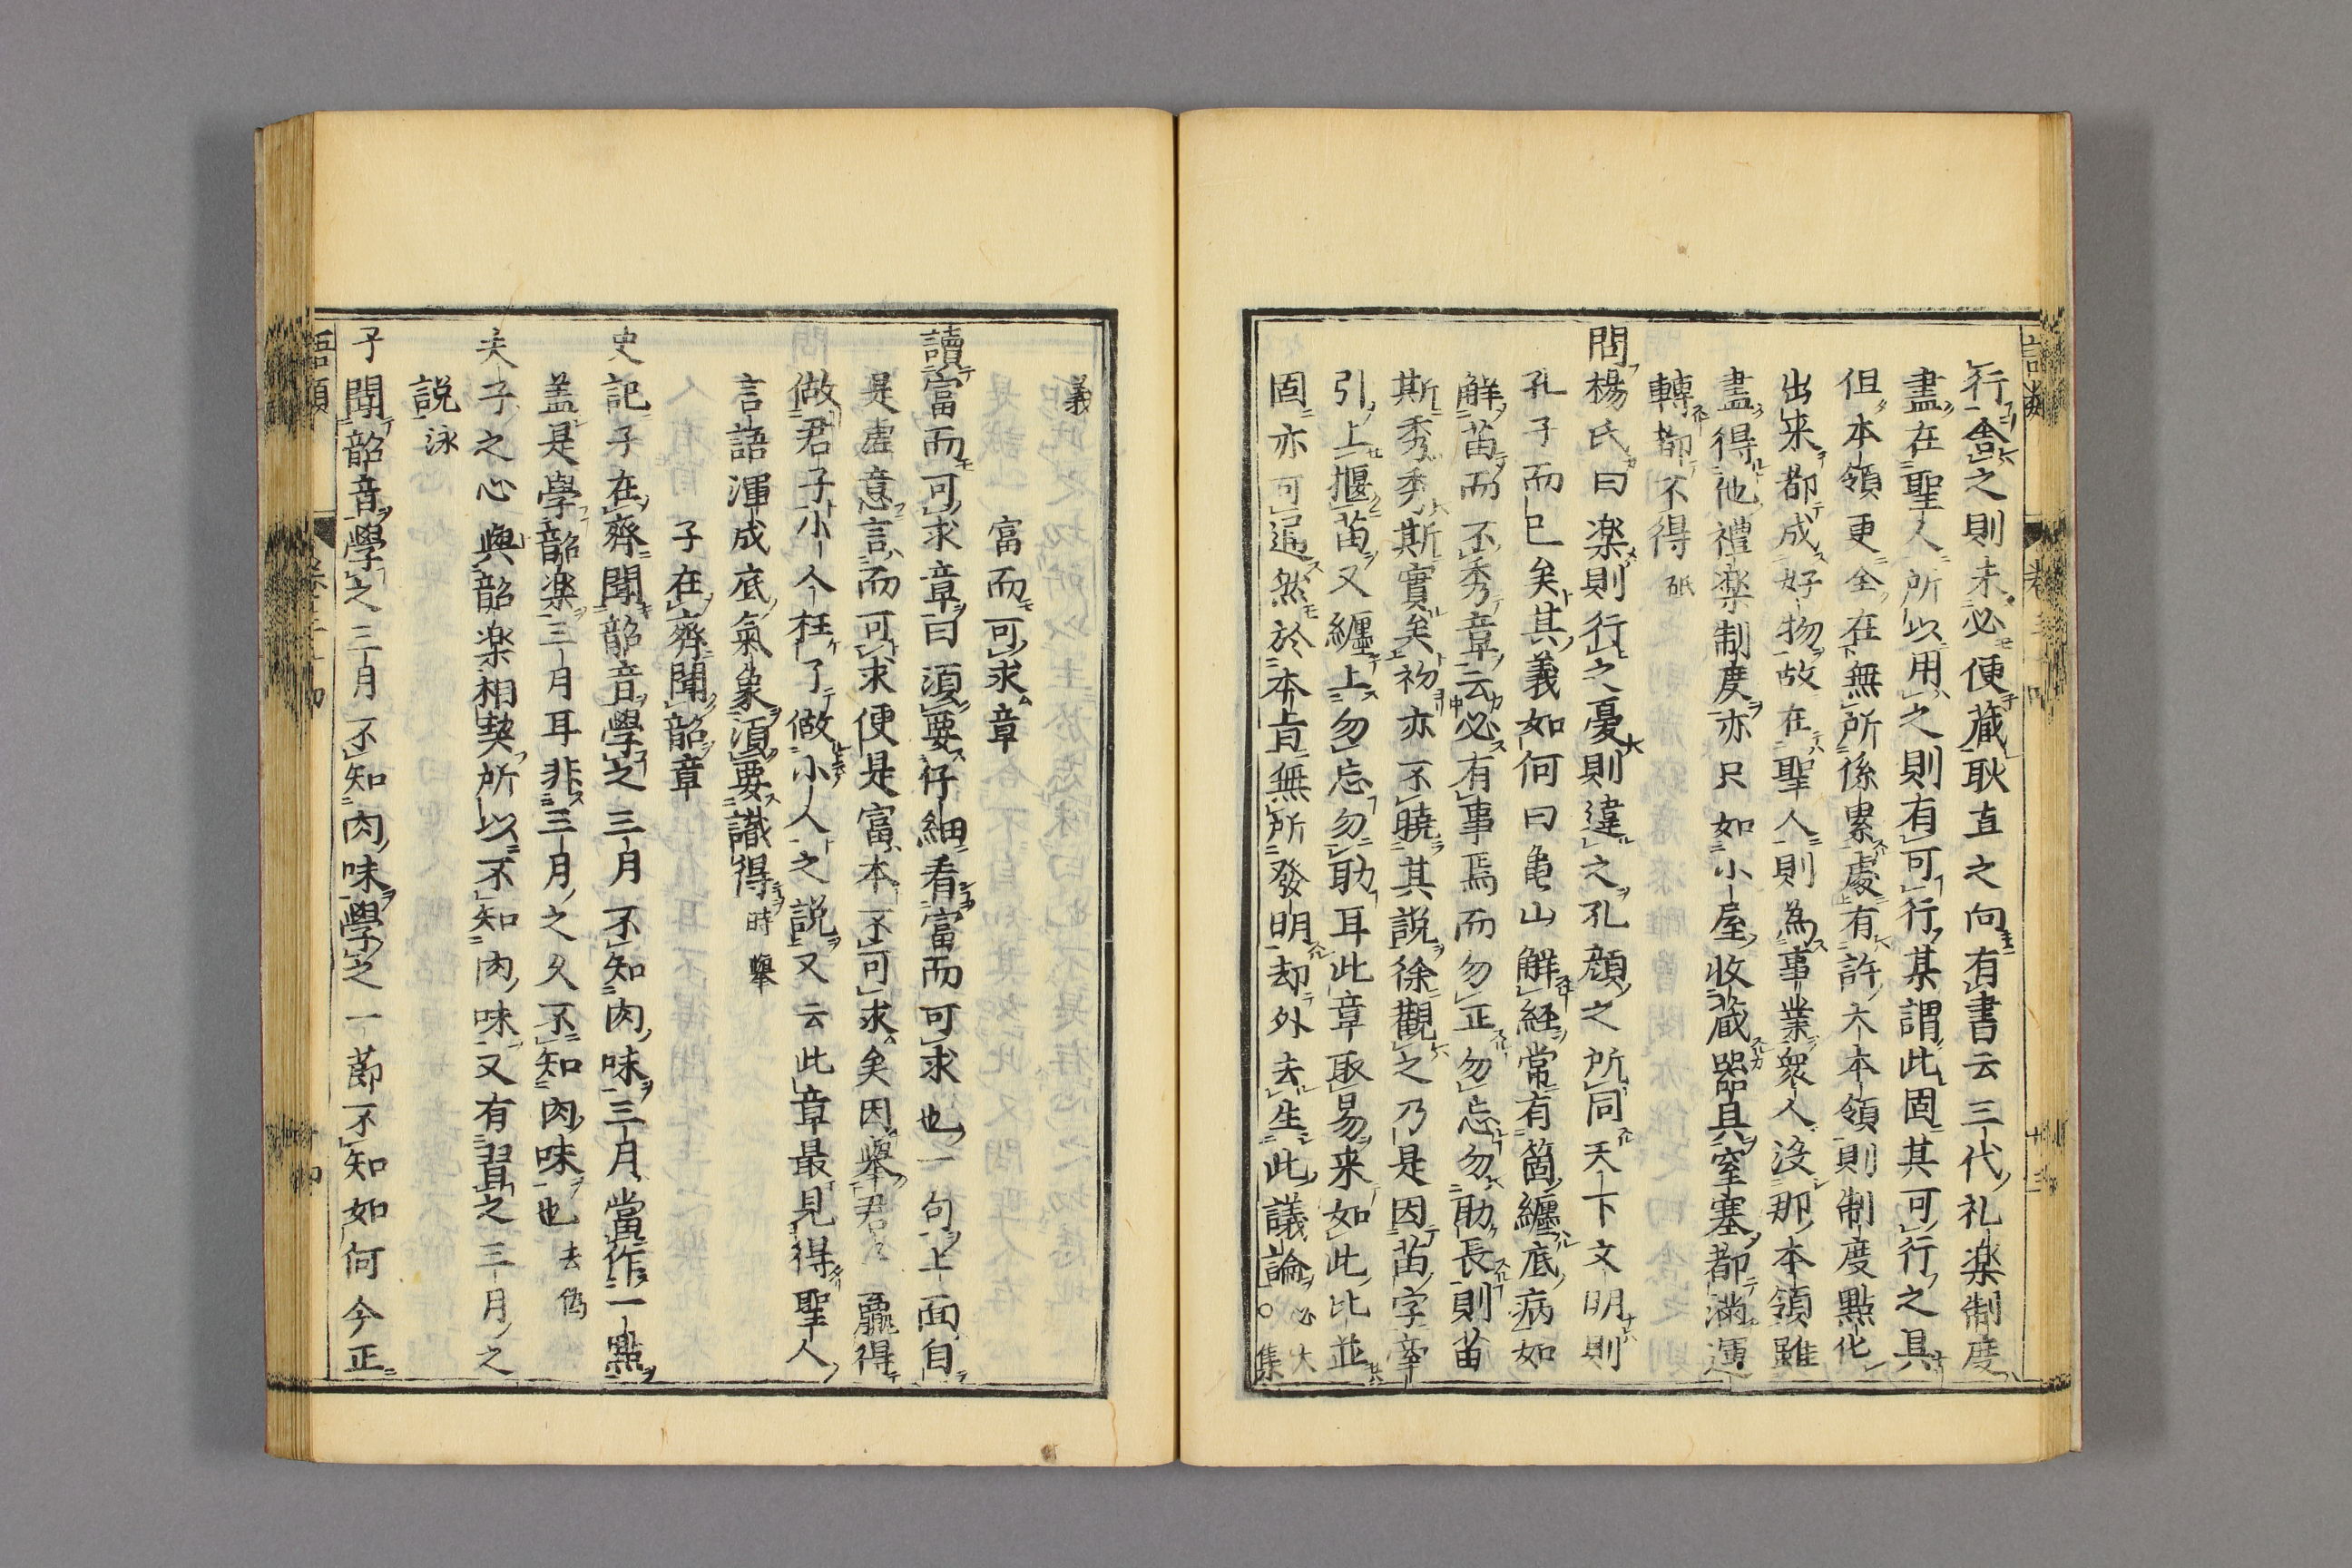 行舍之則未必便藏耿直之向有書云三代礼楽制度
盡在聖人所以用之則有可行某謂此固其可行之具
但本領更全在無所係累處有許大本領則制度點化
出来都成好物故在聖人則為事業衆人没那本領雖
盡得他禮楽制度亦只如小屋収蔵器具窒塞都満運
轉都不得 砥
問楊氏曰楽則行之憂則違之孔顔之所同天下文明則
孔子而已矣其義如何曰亀山解經常有箇纏底病如
解苗而不秀章云必有事焉而勿正勿忘勿助長則苗
斯秀秀斯實矣初亦不曉其説徐觀之乃是因苗字牽
引上揠苗又纏上勿忘勿助耳此章取易来如此比並
固亦可通然於本旨無所發明却外去生此議論 必大 ○集
義
富而可求章
讀富而可求章曰須要仔細看富而可求也一句上面自
是虚意言而可求便是富本不可求矣因舉君子贏得
做君子小人枉了做小人之説又云此章最見得聖人
言語渾成底氣象須要識得 時舉
子在齊聞韶章
史記子在齊聞韶音學之三月不知肉味三月當作一點
盖是學韶楽三月耳非三月之久不知肉味也 去偽
夫子之心與韶楽相契所以不知肉味又有習之三月之
説 泳
子聞韶音學之三月不知肉味學之一節不知如何今正